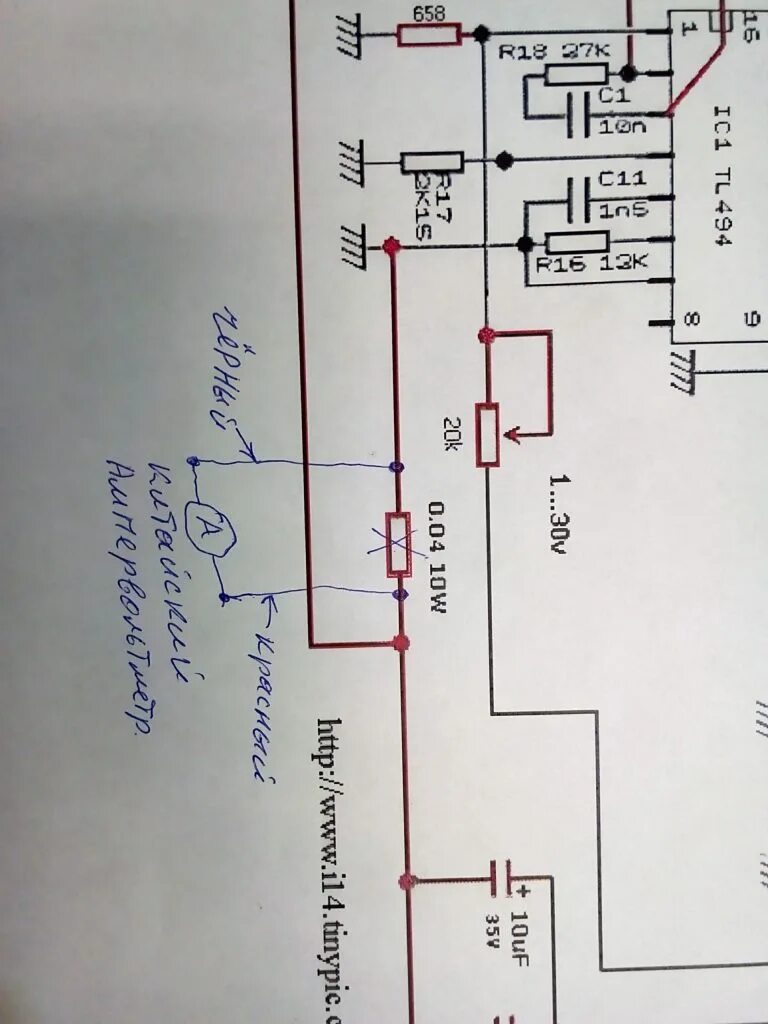 658
1
16
R18 27K
C1
10n
IC1 TL494
R17
2K15
C11
1n5
R16 12K
8
9
20k
1...30v
0.04 10W
чёрный
A
Китайский
Ампервольтметр.
красный
http://www.i14.tinypic.c
+
10uF
35V